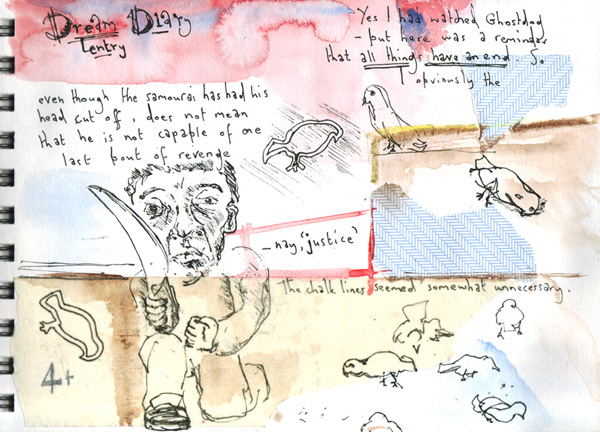 Dream Diary
1entry
Yes I had watched Ghostdog
- but here was a reminder
that all things have an end. So.
I obviously the
even though the samourai has had his
head cut off, does not mean
that he is not capable of one
last bout of revenge
- nay, 'justice'
The chalk lines seemed somewhat unnecessary.
4+